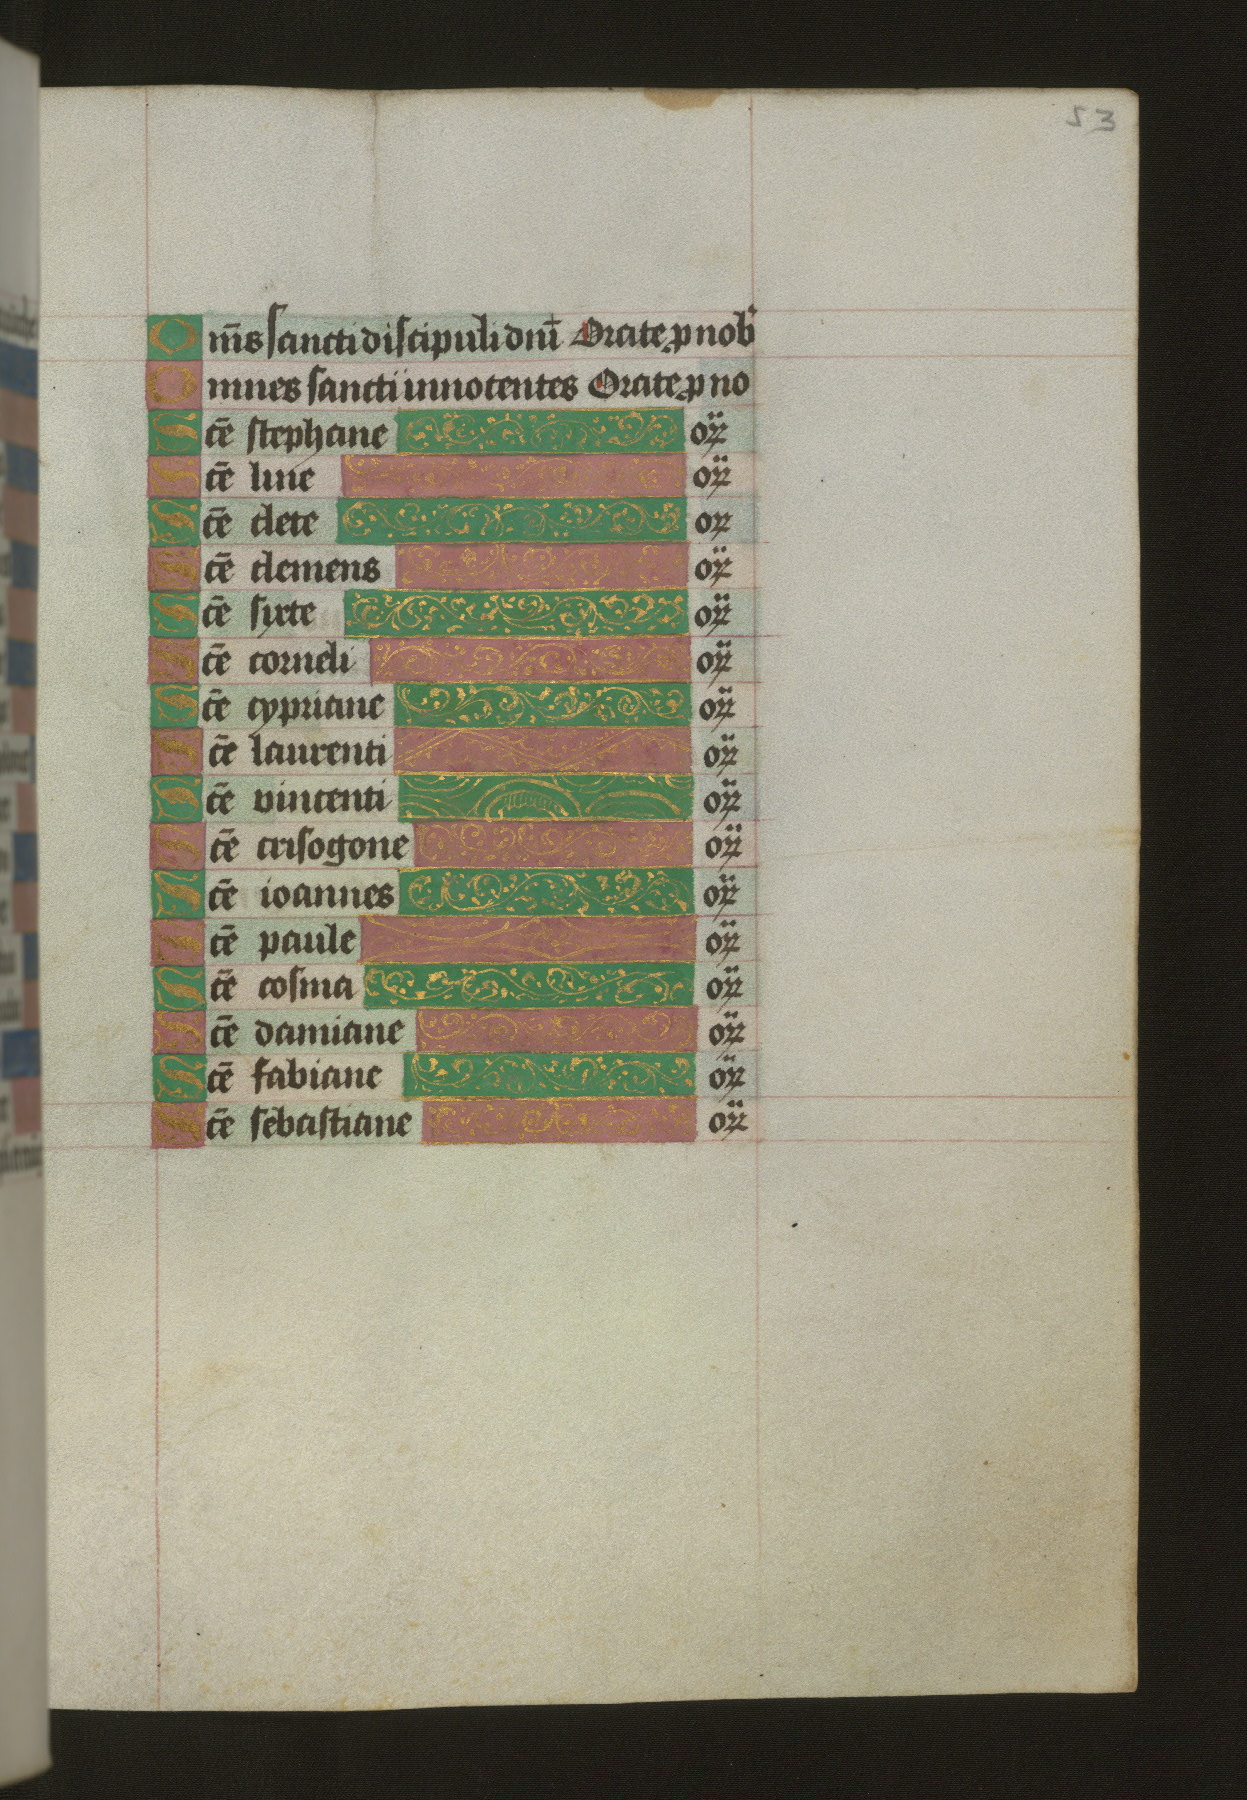 53
Om̄s sancti discipuli dnī Orate p nob
Omnes sancti innocentes Orate p no
Scē stephane or
Scē line or
Scē clete or
Scē clemens or
Scē sixte or
Scē corneli or
Scē cypriane or
Scē laurenti or
Scē vincenti or
Scē crisogone or
Scē ioannes or
Scē paule or
Scē cosma or
Scē damiane or
Scē fabiane or
Scē sebastiane or